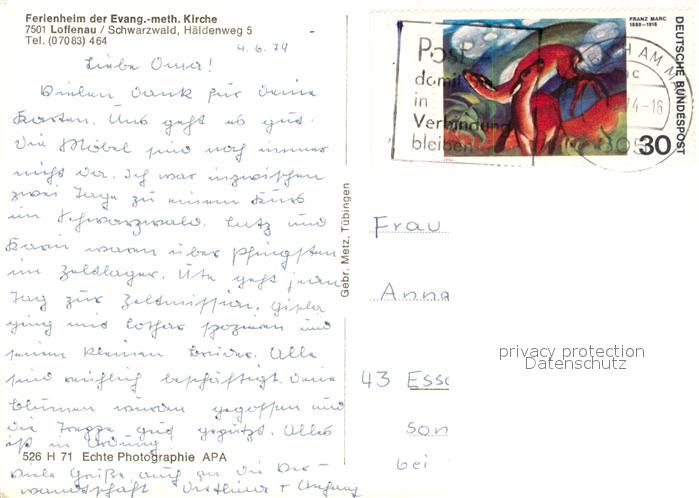 Ferienheim der Evang.-meth. Kirche
7501 Loffenau / Schwarzwald, Häldenweg 5
Tel. (07083) 464
4.6.74
Liebe Oma!
Vielen Dank für Deine
Karten. Uns geht es gut.
Die Möbel sind noch immer
nicht da. Ich war inzwischen
zwei Tage zu einem Kurs
im Schwarzwald. Lutz und
Karin waren über Pfingsten
im Zeltlager. Ute geht jeden
Tag zur Zeltmission. Gisela
ging mit Lothar spazieren und
seinem kleinen Bruder. Alle
sind reichlich beschäftigt. Deine
Blumen wurden gegossen und
die Treppe geputzt. Alles
ist in Ordnung
526 H 71 Echte Photographie APA
Viele Grüße auch an die Ver-
wandtschaft
Gebr. Metz, Tübingen
FRANZ MARC
1880-1916
DEUTSCHE BUNDESPOST
30
Post
damit
in
Verbindung
bleiben
AM M
74-16
Frau
Anna
43 Esse
son
bei
privacy protection
Datenschutz